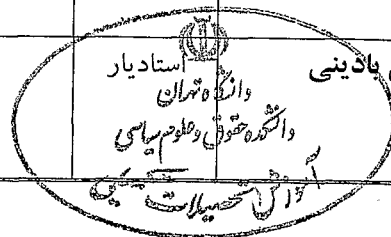 بادینی
استادیار
دانشگاه تهران
دانشکده حقوق و علوم سیاسی
آموزش تحصیلات تکمیلی